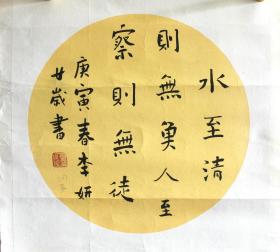 水至清
則無魚人至
察則無徒
庚寅春李妍
廿歲書